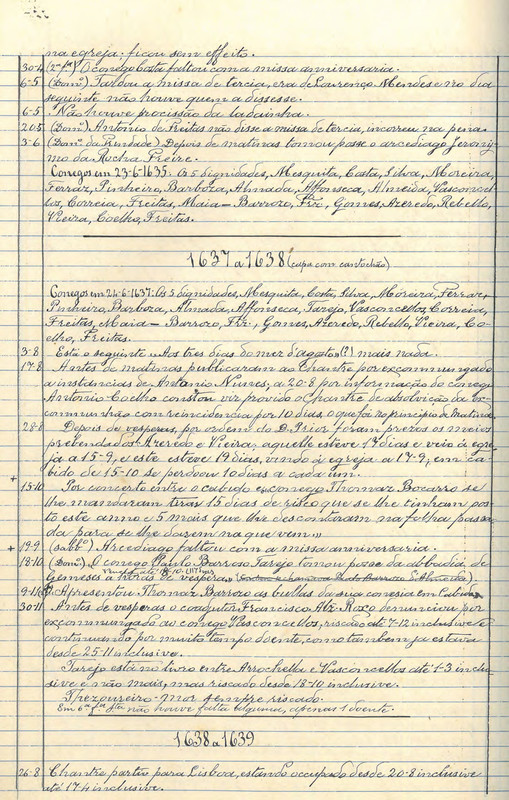 na egreja: ficou sem effeito.
30-4 (2ª fª) O conego Costa faltou com a missa anniversaria.
6-5 (Domº) Tardou a missa de tercia, era de Lourenço Mendes e no dia
seguinte não houve quem a dissesse.
6-5 Não houve procissão da ladainha.
20-5 (Domº) Antonio de Freitas não disse a missa de tercia, incorreu na pena.
3-6 (Domº da Trindade) Depois de matinas tomou posse o arcediago Jerony-
mo da Rocha Freire.
Conegos em 23-6-1635. Os 5 dignidades, Mesquita, Costa, Silva, Moreira,
Ferraz, Pinheiro, Barboza, Almada, Affonseca, Almeida, Vasconcel-
los, Correia, Freitas, Maia - Barrozo, Gomes, Azeredo, Rebello,
Vieira, Coelho, Freitas.
1637 a 1638 (capa com cantochão)
Conegos em 24-6-1637: Os 5 dignidades, Mesquita, Costa, Silva, Moreira, Ferraz,
Pinheiro, Barboza, Almada, Affonseca, Tarejo, Vasconcellos, Correia,
Freitas, Maia - Barrozo, Gomes, Azeredo, Rebello, Vieira, Co-
elho, Freitas.
3-8 Está o seguinte "Aos tres dias do mez d'agosto (?) mais nada.
17-8 Antes de matinas publicaram ao Chantre por excommungado
a instancias de Antonio Nunes, a 20-8 por informação do conego
Antonio Coelho constou vir provido o Chantre de absolvição da ex-
communhão com reincidencia por 10 dias, o que foi no principio de Matinas.
28-8 Depois de vesperas, por ordem do D. Prior foram prezos os meios
prebendados Azeredo e Vieira, aquelle esteve 17 dias e veio à egre-
ja a 15-9, e este esteve 19 dias, vindo à egreja a 17-9, em ca-
bido de 15-10 se perdoou 10 dias a cada um.
+
15-10 Por concerto entre o cabido e o conego Thomaz Bocarro se
lhe mandaram tirar 15 dias de risco que se lhe tinham pos-
to este anno e 5 mais que lhe descontaram na folha passa-
da para se lhe darem na que vem,,
+ 19-9 (sabbº) Arcediago faltou com a missa anniversaria.
18-10 (Domº) O conego Paulo Barrozo Tarejo tomou posse da abbadia de
Gemeses a horas de vespera,,
Apresentou Thomaz Barrozo as bullas da sua conesia em Cabido
30-11 Antes de vesperas o coadjutor Francisco Alz Roxo denunciou por
excommungado ao conego Vasconcellos, riscado até 7-12 inclusive e
continuando por muito tempo doente, como tambem já estava
desde 25-11 inclusive.
Tarejo está no livro entre Arochella e Vasconcellos até 1-3 inclu-
sive e não mais, mas riscado desde 18-10 inclusive.
Thezoureiro-mor sempre riscado.
Em 6ª fª stª não houve falta alguma, apenas 1 doente.
1638 a 1639
26-8 Chantre partiu para Lisboa, estando occupado desde 20-8 inclusive
até 17-4 inclusive.